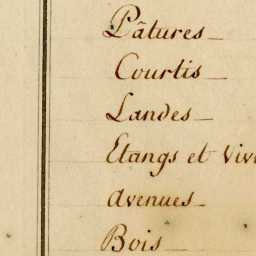 Pâtures_
Courtis_
Landes_
Etangs et Viv
avenues_
Bois_